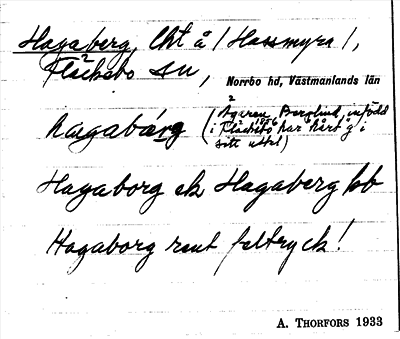 Hagaberg, lht å /Hassmyra/,
Fläckebo sn,
Norrbo hd, Västmanlands län
hagabärg (Ägaren, Berglind, infödd
i Fläckebo 1876 har hårt g i
sitt uttal)
Hagaborg ek Hagaberg jb
Hagaborg rent feltryck!
A. THORFORS 1933